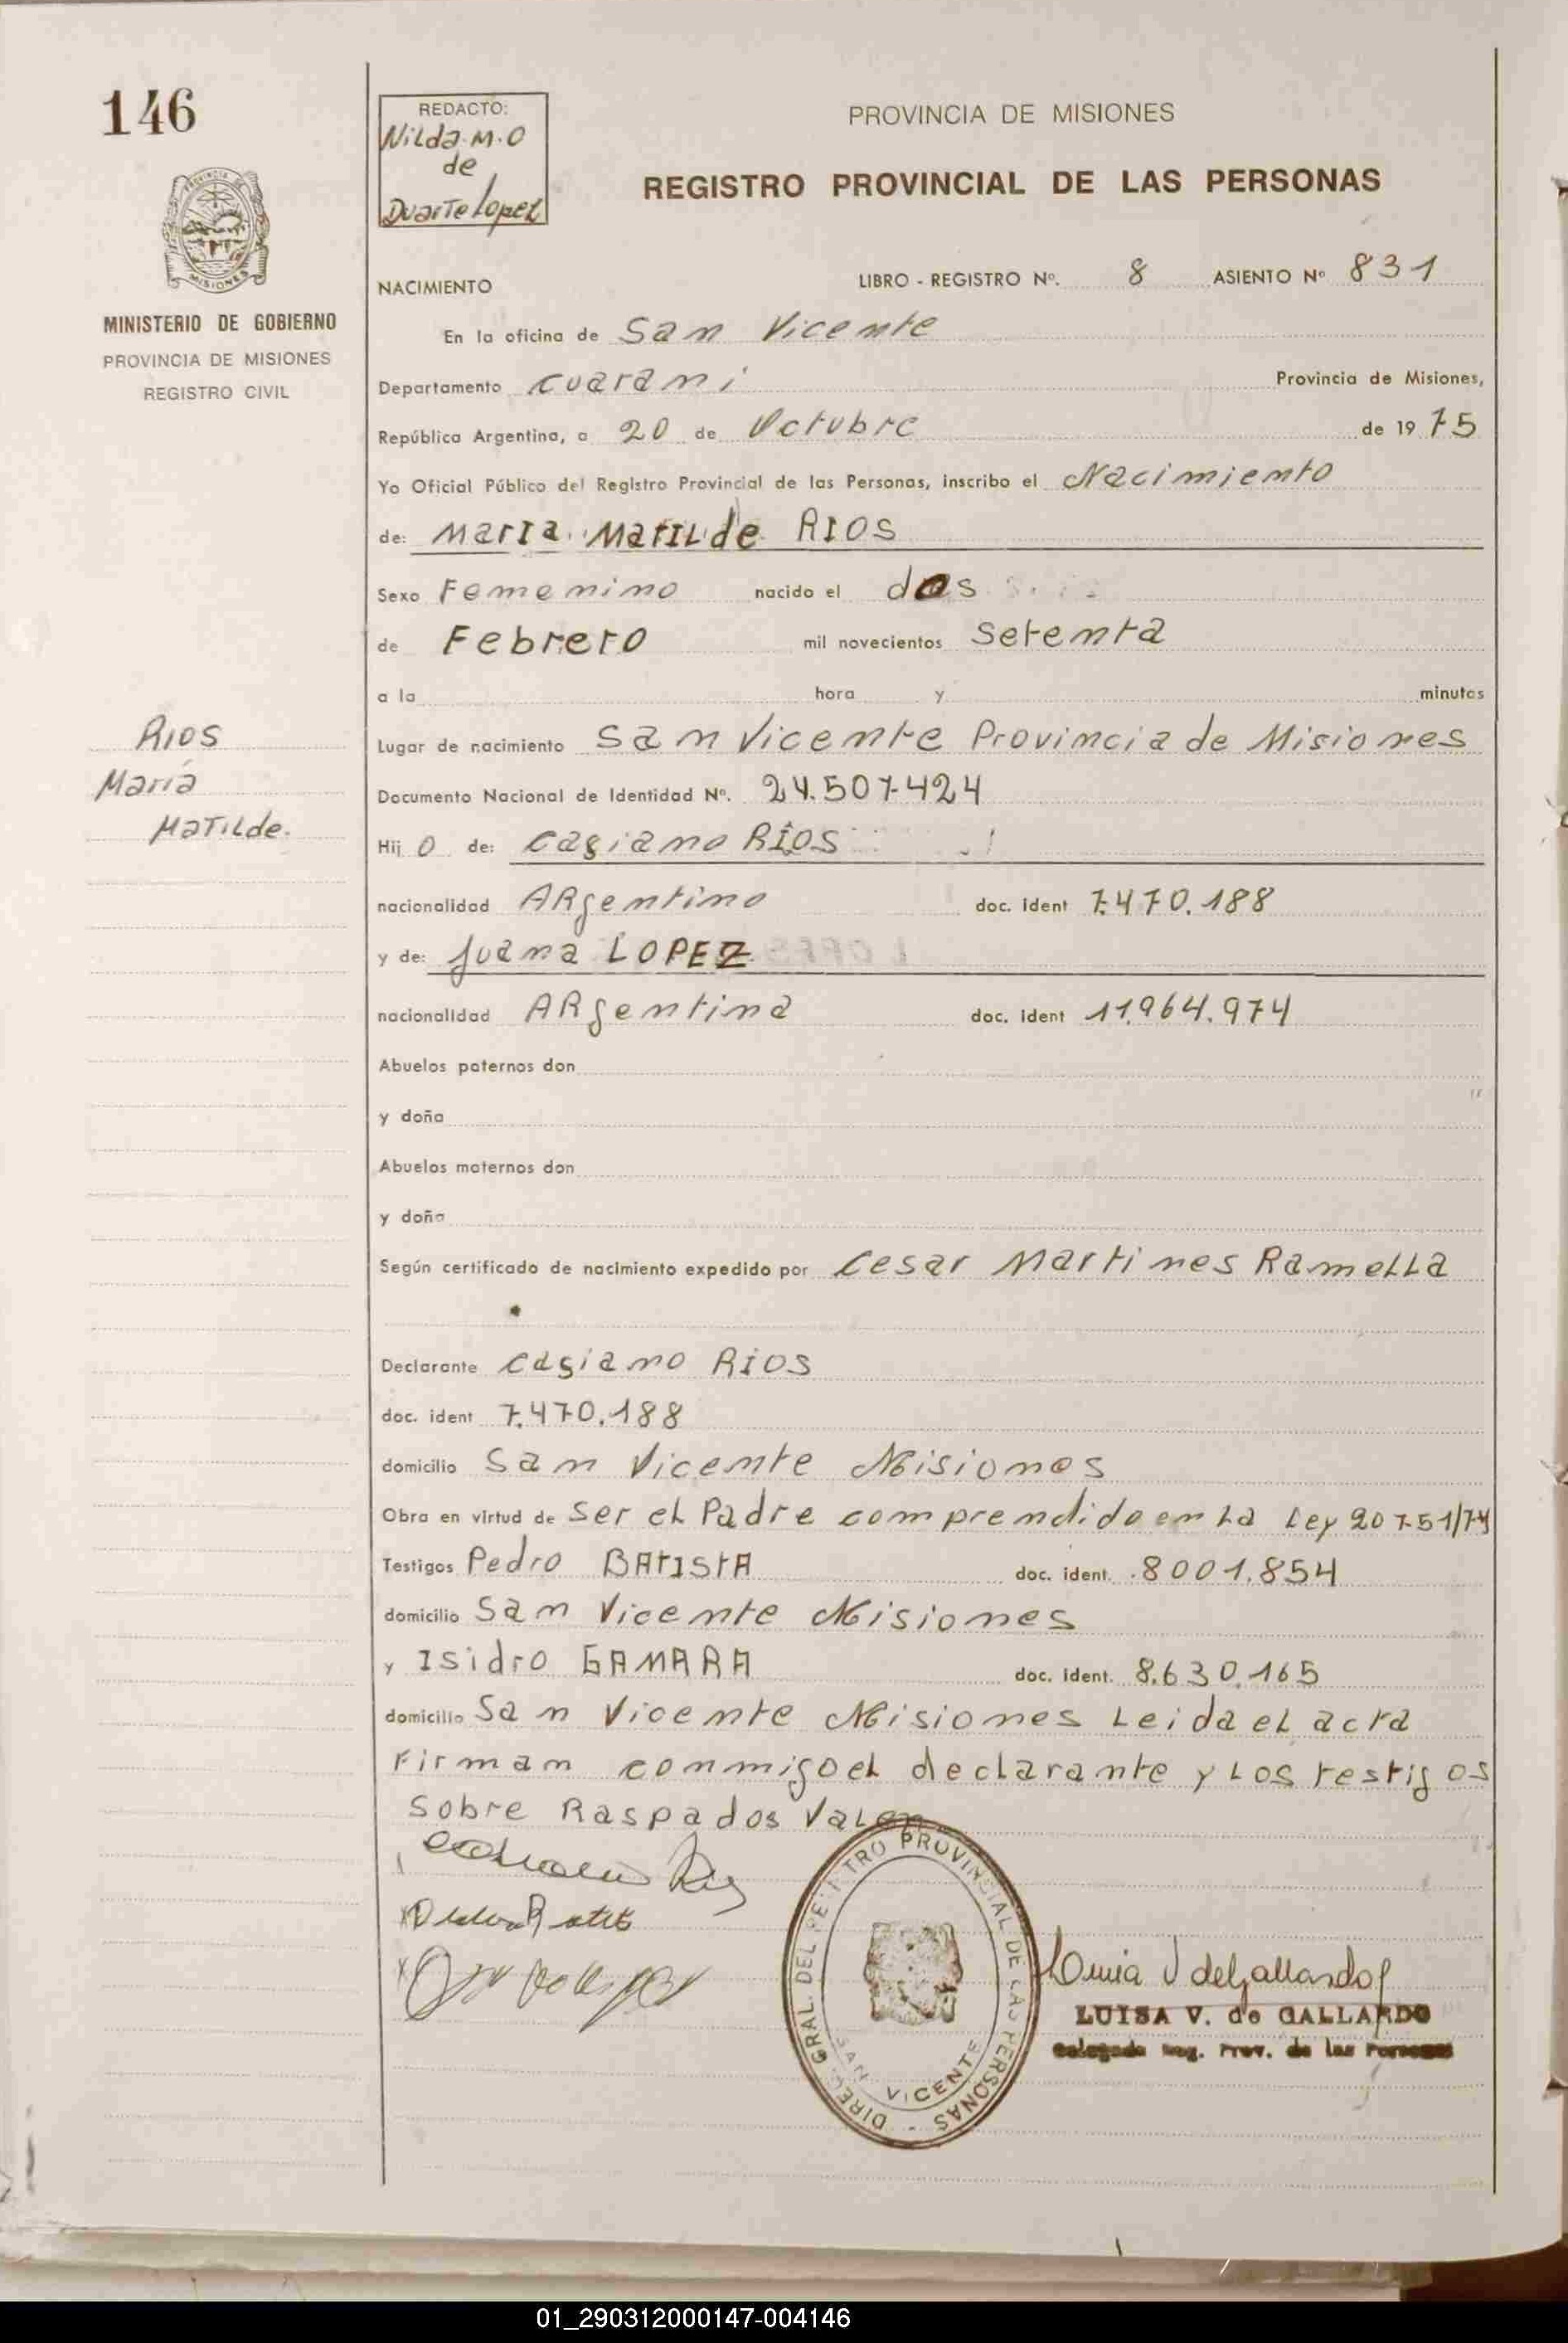 146
REDACTO:
Nilda M.O
de
Duarte Lopez
PROVINCIA DE MISIONES
REGISTRO PROVINCIAL DE LAS PERSONAS
PROVINCIA DE
MISIONES
MINISTERIO DE GOBIERNO
PROVINCIA DE MISIONES
REGISTRO CIVIL
NACIMIENTO LIBRO - REGISTRO Nº. 8 ASIENTO Nº 831
En la oficina de San Vicente
Departamento Cuarani Provincia de Misiones,
República Argentina, a 20 de Octubre de 1975
Yo Oficial Público del Registro Provincial de las Personas, inscribo el Nacimiento
de: María Matilde RIOS
Sexo Femenino nacido el dos
de Febrero mil novecientos setenta
a la hora y minutos
RIOS
María
Matilde.
Lugar de nacimiento San Vicente Provincia de Misiones
Documento Nacional de Identidad Nº. 24.507.424
Hij o de: Casiano RÍOS
nacionalidad ARgentino doc. ident 7.470.188
y de: Juana LOPEZ
nacionalidad ARgentina doc. ident 11.964.974
Abuelos paternos don
y doña
Abuelos maternos don
y doña
Según certificado de nacimiento expedido por Cesar Martines Ramella
Declarante Casiano RÍOS
doc. ident 7.470.188
domicilio San Vicente Misiones
Obra en virtud de ser el Padre comprendido en la Ley 20751/74
Testigos Pedro BATISTA doc. ident. 8001.854
domicilio San Vicente Misiones
y Isidro GAMARA doc. ident. 8.630.165
domicilio San Vicente Misiones Leida el acta
Firman conmigo el declarante y los testigos
Sobre Raspados Valen
DIREC. GRAL. DEL REGISTRO PROVINCIAL DE LAS PERSONAS -
SAN VICENTE
Luisa V de Gallardo
LUISA V. de GALLARDO
Delegada Reg. Prov. de las Personas
01_290312000147-004146